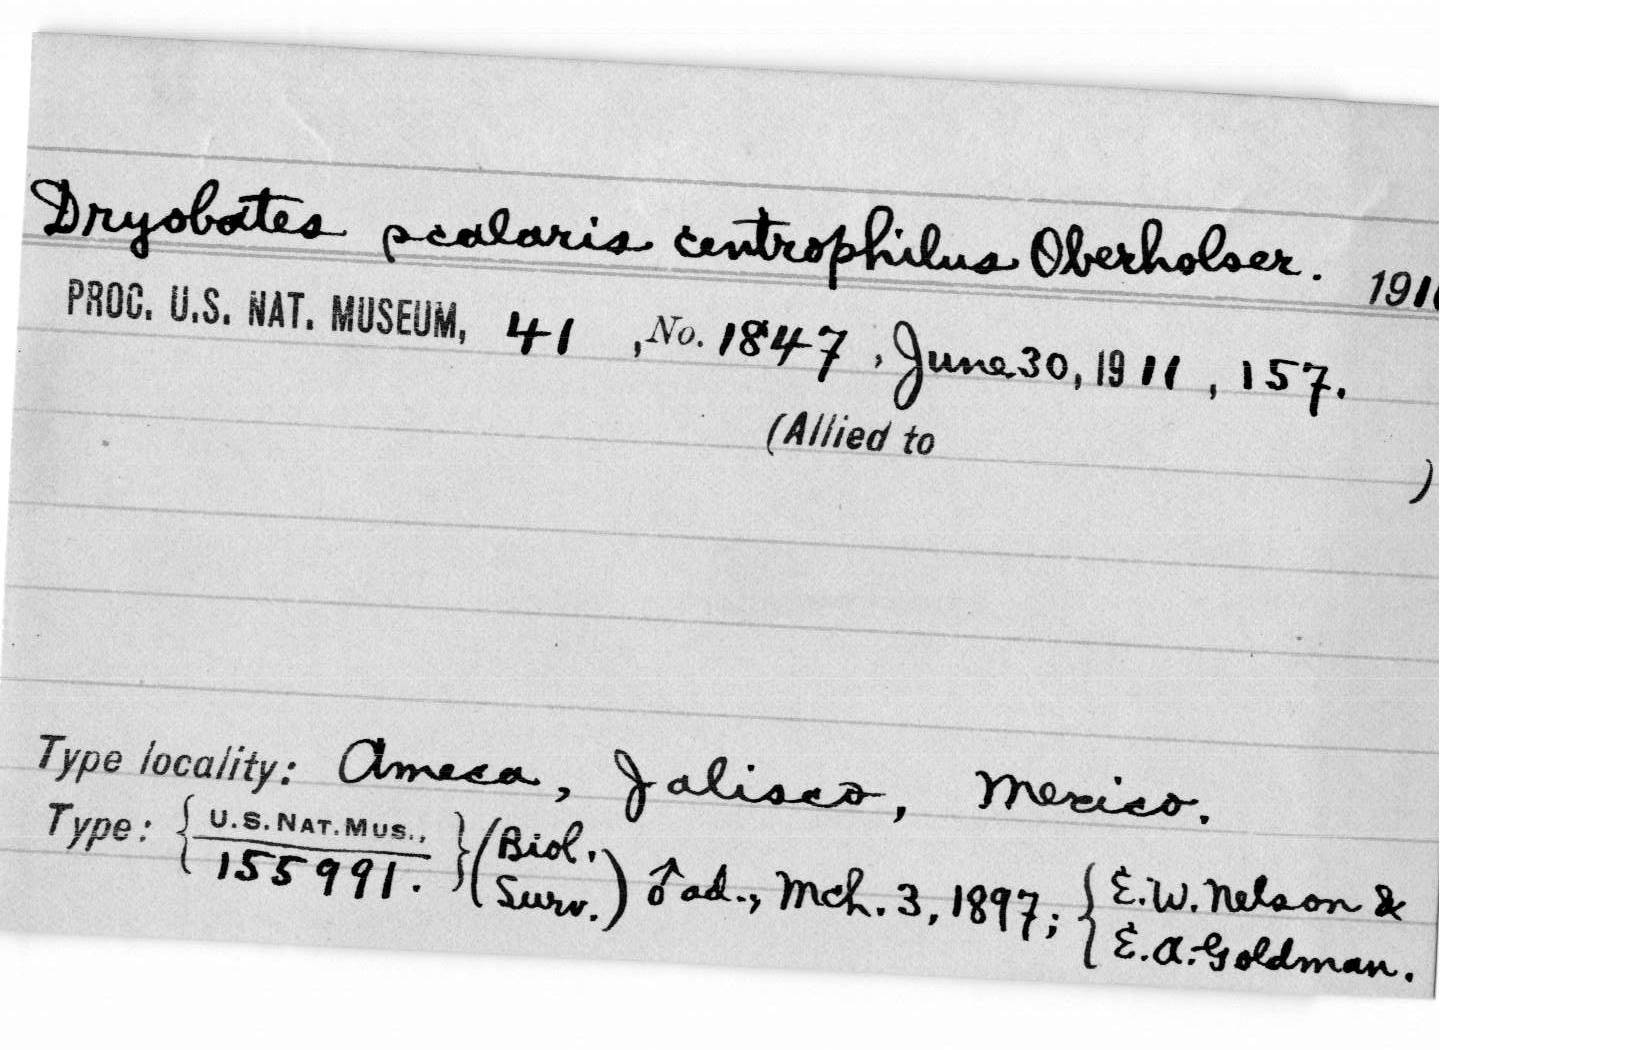 Dryobates scalaris centrophilus Oberholser. 1911
PROC. U.S. NAT. MUSEUM, 41, No. 1847, June 30, 1911, 157.
(Allied to )
Type locality: Ameca, Jalisco, Mexico.
Type: { U.S. NAT. MUS., } (Biol. { E. W. Nelson &
155991. Surv.) ♂ ad., Mch. 3, 1897; E. A. Goldman.